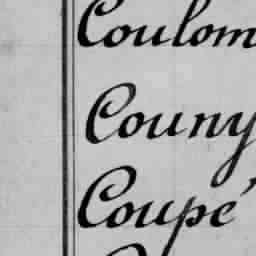 Coulom
Couny
Coupé